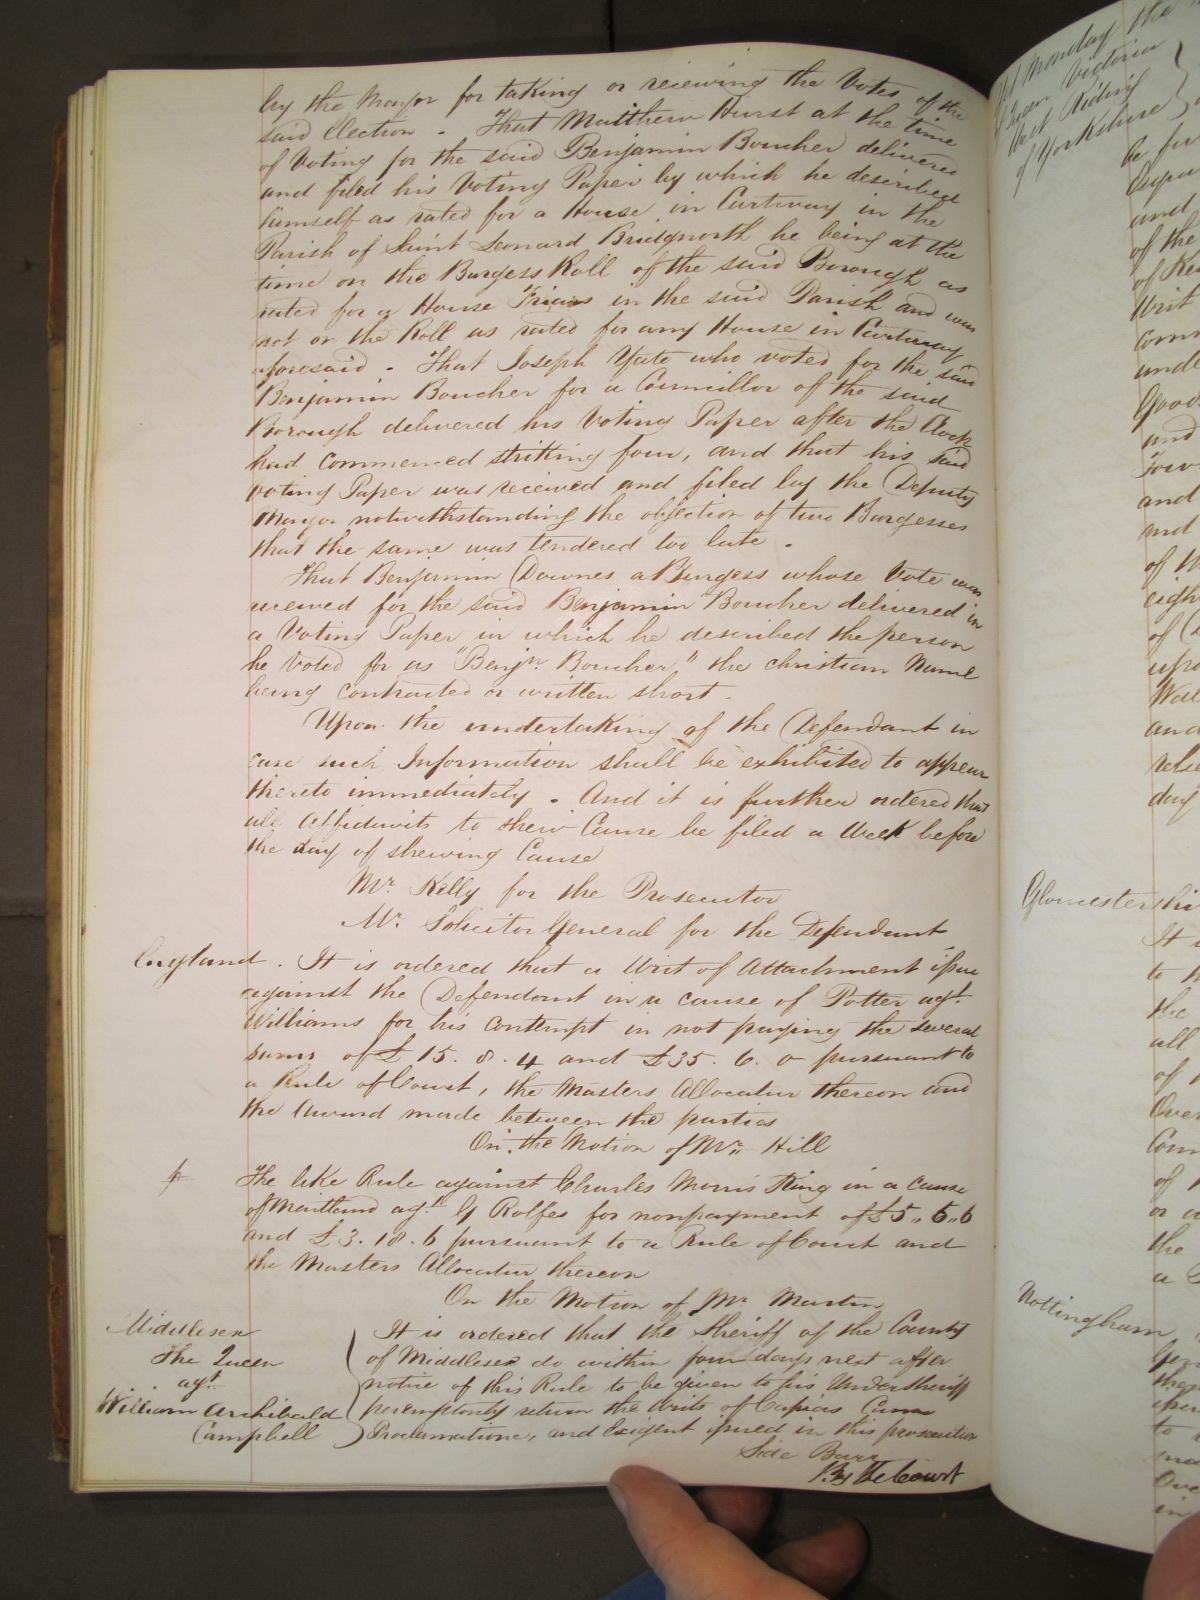 by the Mayor for taking or receiving the Votes of the
said Election . That Matthew Hurst at the time
of Voting for the said Benjamin Boucher delivered
and filed his Voting Paper by which he described
himself as rated for a House in Cartway in the
Parish of Saint Leonard Bridgnorth he being at the
time on the Burgess Roll of the said Borough as
rated for a House Friars in the said Parish and was
not on the Roll as rated for any House in Cartway
aforesaid . That Joseph Yate who voted for the said
Benjamin Boucher for a Councillor of the said
Borough delivered his Voting Paper after the Clock
had commenced striking four, and that his said
voting Paper was received and filed by the Deputy
Mayor notwithstanding the objection of two Burgesses
that the same was tendered too late .
That Benjamin Downes a Burgess whose Vote was
received for the said Benjamin Boucher delivered in
a Voting Paper in which he described the person
he voted for as "Benjn. Boucher," the christian Name
being contracted or written short .
Upon the undertaking of the Defendant in
case such Information shall be exhibited to appear
thereto immediately . And it is further ordered that
all Affidavits to shew Cause be filed a Week before
the day of shewing Cause
Mr. Kelly for the Prosecutor
Mr. Solicitor General for the Defendant
England . It is ordered that a Writ of Attachment issue
against the Defendant in a cause of Potter agt.
Williams for his contempt in not paying the several
sums of £15. 8. 4 and £35. 6. 0 pursuant to
a Rule of Court, the Masters Allocatur thereon and
the Award made between the parties
On the Motion of Mr. Hill
The like Rule against Charles Morris King in a cause
of Maitland agt. G Rolfes for nonpayment of £5,, 6,, 6
and £3. 18. 6 pursuant to a Rule of Court and
the Masters Allocatur thereon
On the Motion of Mr. Martin
Middlesex
The Queen
agt.
William Archibald
Campbell
It is ordered that the Sheriff of the County
of Middlesex do within four days next after
notice of this Rule to be given to his Undersheriff
peremptorily return the Writs of Capias Cum
Proclamatione, and Exigent issued in this prosecution
Side Bar
By the Court
Monday the
Victoria
Riding
of Yorkshire
be
and
of the
Writ
and
and
and
of
of
upon
and
day
Gloucestershi
It
to
the
all
of
Over
of
or
the
a
Nottingham
to
in